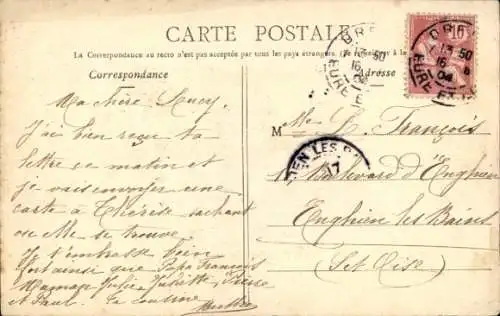 CARTE POSTALE
La Correspondance au recto n'est pas acceptée par tous les pays étrangers. (Se renseigner à la
Correspondance
Adresse
Ma chère Lucy,
J'ai bien reçu ta
lettre ce matin et
je vais envoyer une
carte à Thérèse sachant
où elle se trouve.
J'y embrasse bien
fort ainsi que Papa François
Maman Julia Juliette, Pierre
et Paul. Ta cousine
M lle L. François
1 Boulevard d'Enghien
Enghien les Bains
(Set Oise)
10
DRE
13 50
16
04
EURE
DRE
13 50
16
04
EURE
IEN LES B
17